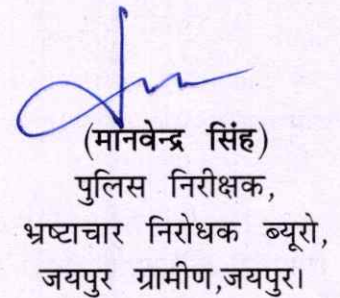 (मानवेन्द्र सिंह)
पुलिस निरीक्षक,
भ्रष्टाचार निरोधक ब्यूरो,
जयपुर ग्रामीण,जयपुर।